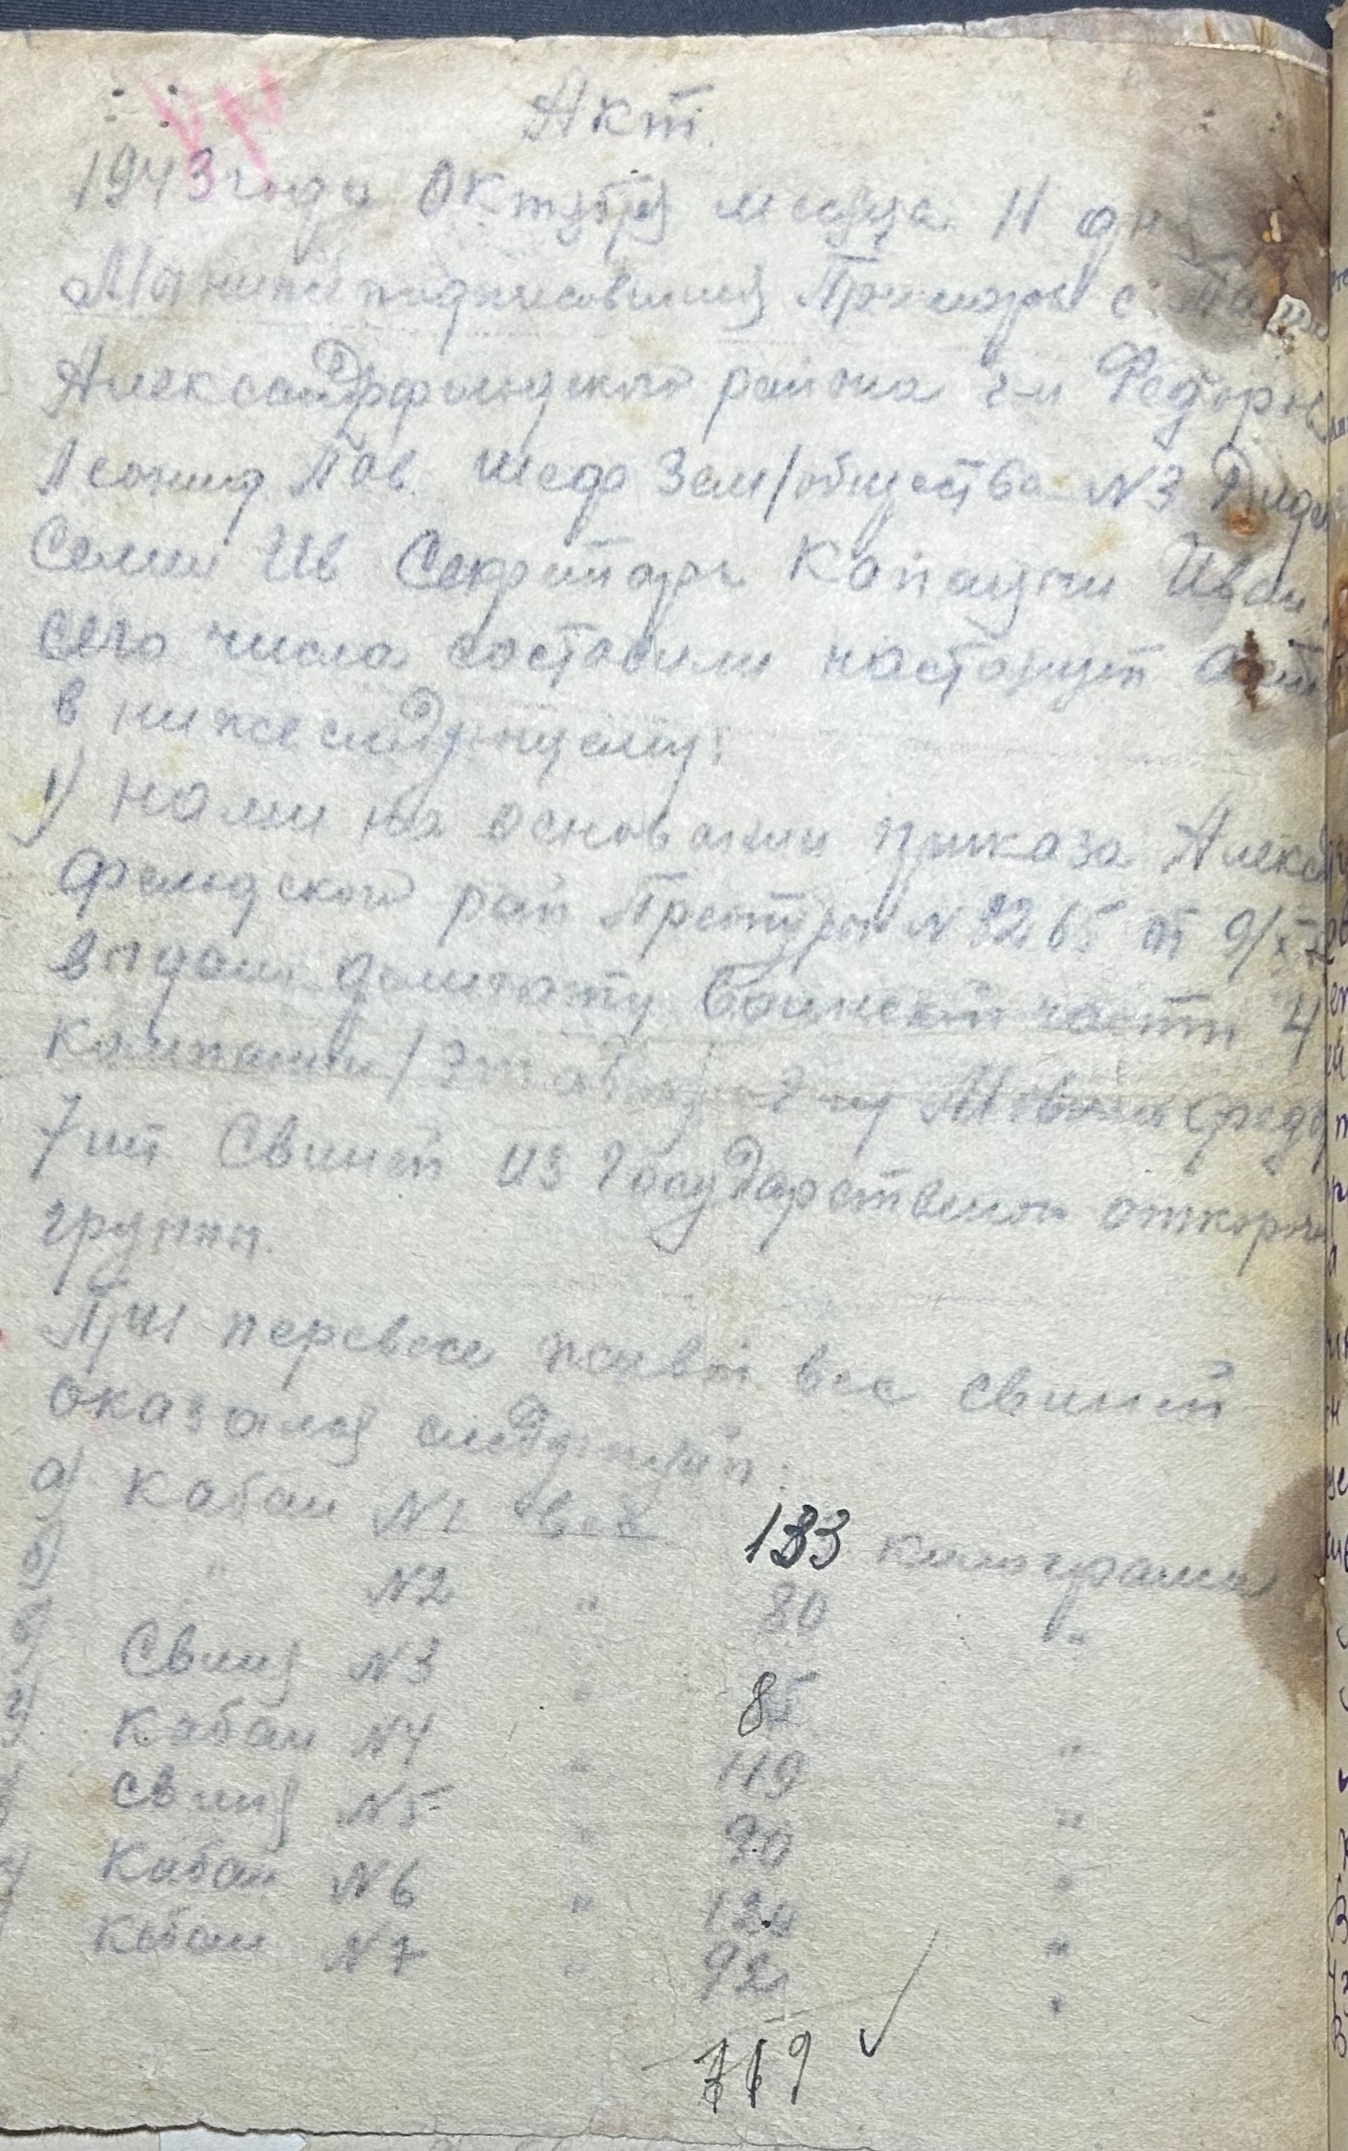 Акт
1943 года Октября месяца 11 дня
Мы нижеподписавшиеся Примарь с.
Александрфельдского района г-н
Леонид Пав. шеф Зем/общества №3
Семен Ив Секретарь Капацин Иван
сего числа составили настоящий акт
в нижеследующему:
1) нами на основании приказа Алекса
фельдского рай Претуры № 3265 от 9/X
выдали делегату воинской части 4
компании
7 шт Свиней из государственой откормоч
группы.
При перевесе живой вес свиней
оказался следующий:
а) Кабан №1 вес 133 килограмм
б) " №2 " 80 "
в) Свиня №3 " 85 "
г) Кабан №4 " 119 "
свиня №5 " 90 "
Кабан №6 " 120 "
Кабан №7 " 92 "
719